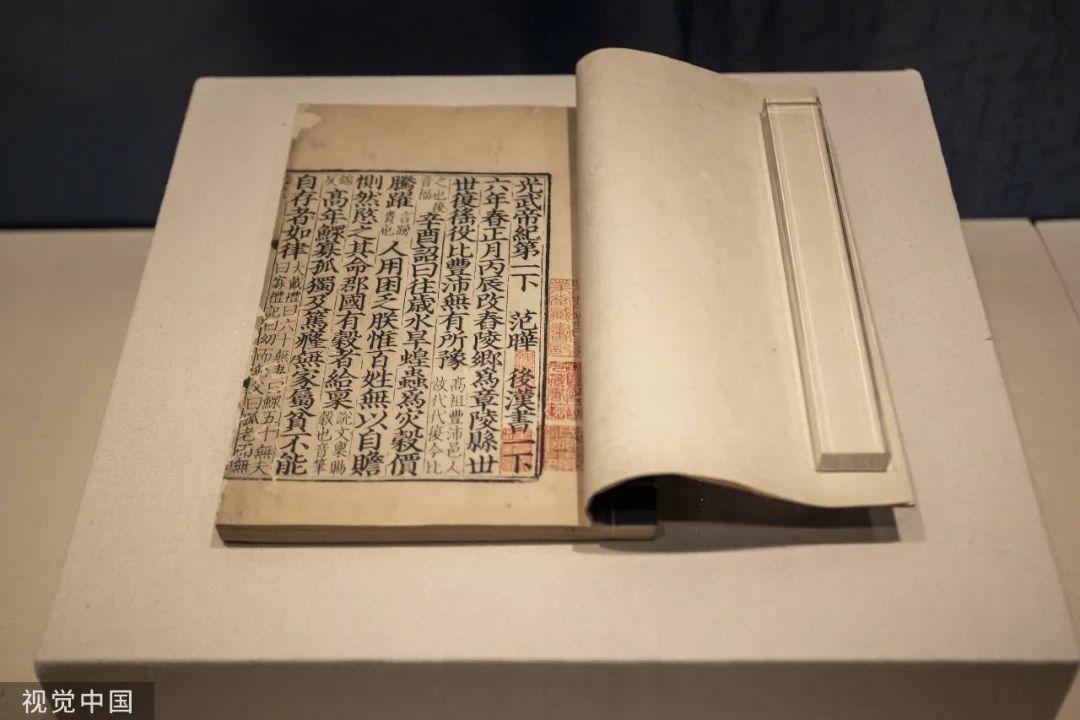 光武帝紀第一下 范曄 後漢書一下
六年春正月丙辰改舂陵鄉爲章陵縣世
世復徭役比豐沛無有所豫 高祖豐沛邑人故代代復今比
之也復音福 辛酉詔曰往歲水旱蝗蟲爲灾穀價
騰躍 言踴貴也 人用困乏朕惟百姓無以自贍
惻然愍之其命郡國有穀者給稟 說文稟賜穀也音筆
錦反 高年鰥寡孤獨及篤癃無家屬貧不能
自存者如律 大戴禮曰六十無妻曰鰥五十無夫曰寡禮記曰幼而無父曰孤老而無
视觉中国